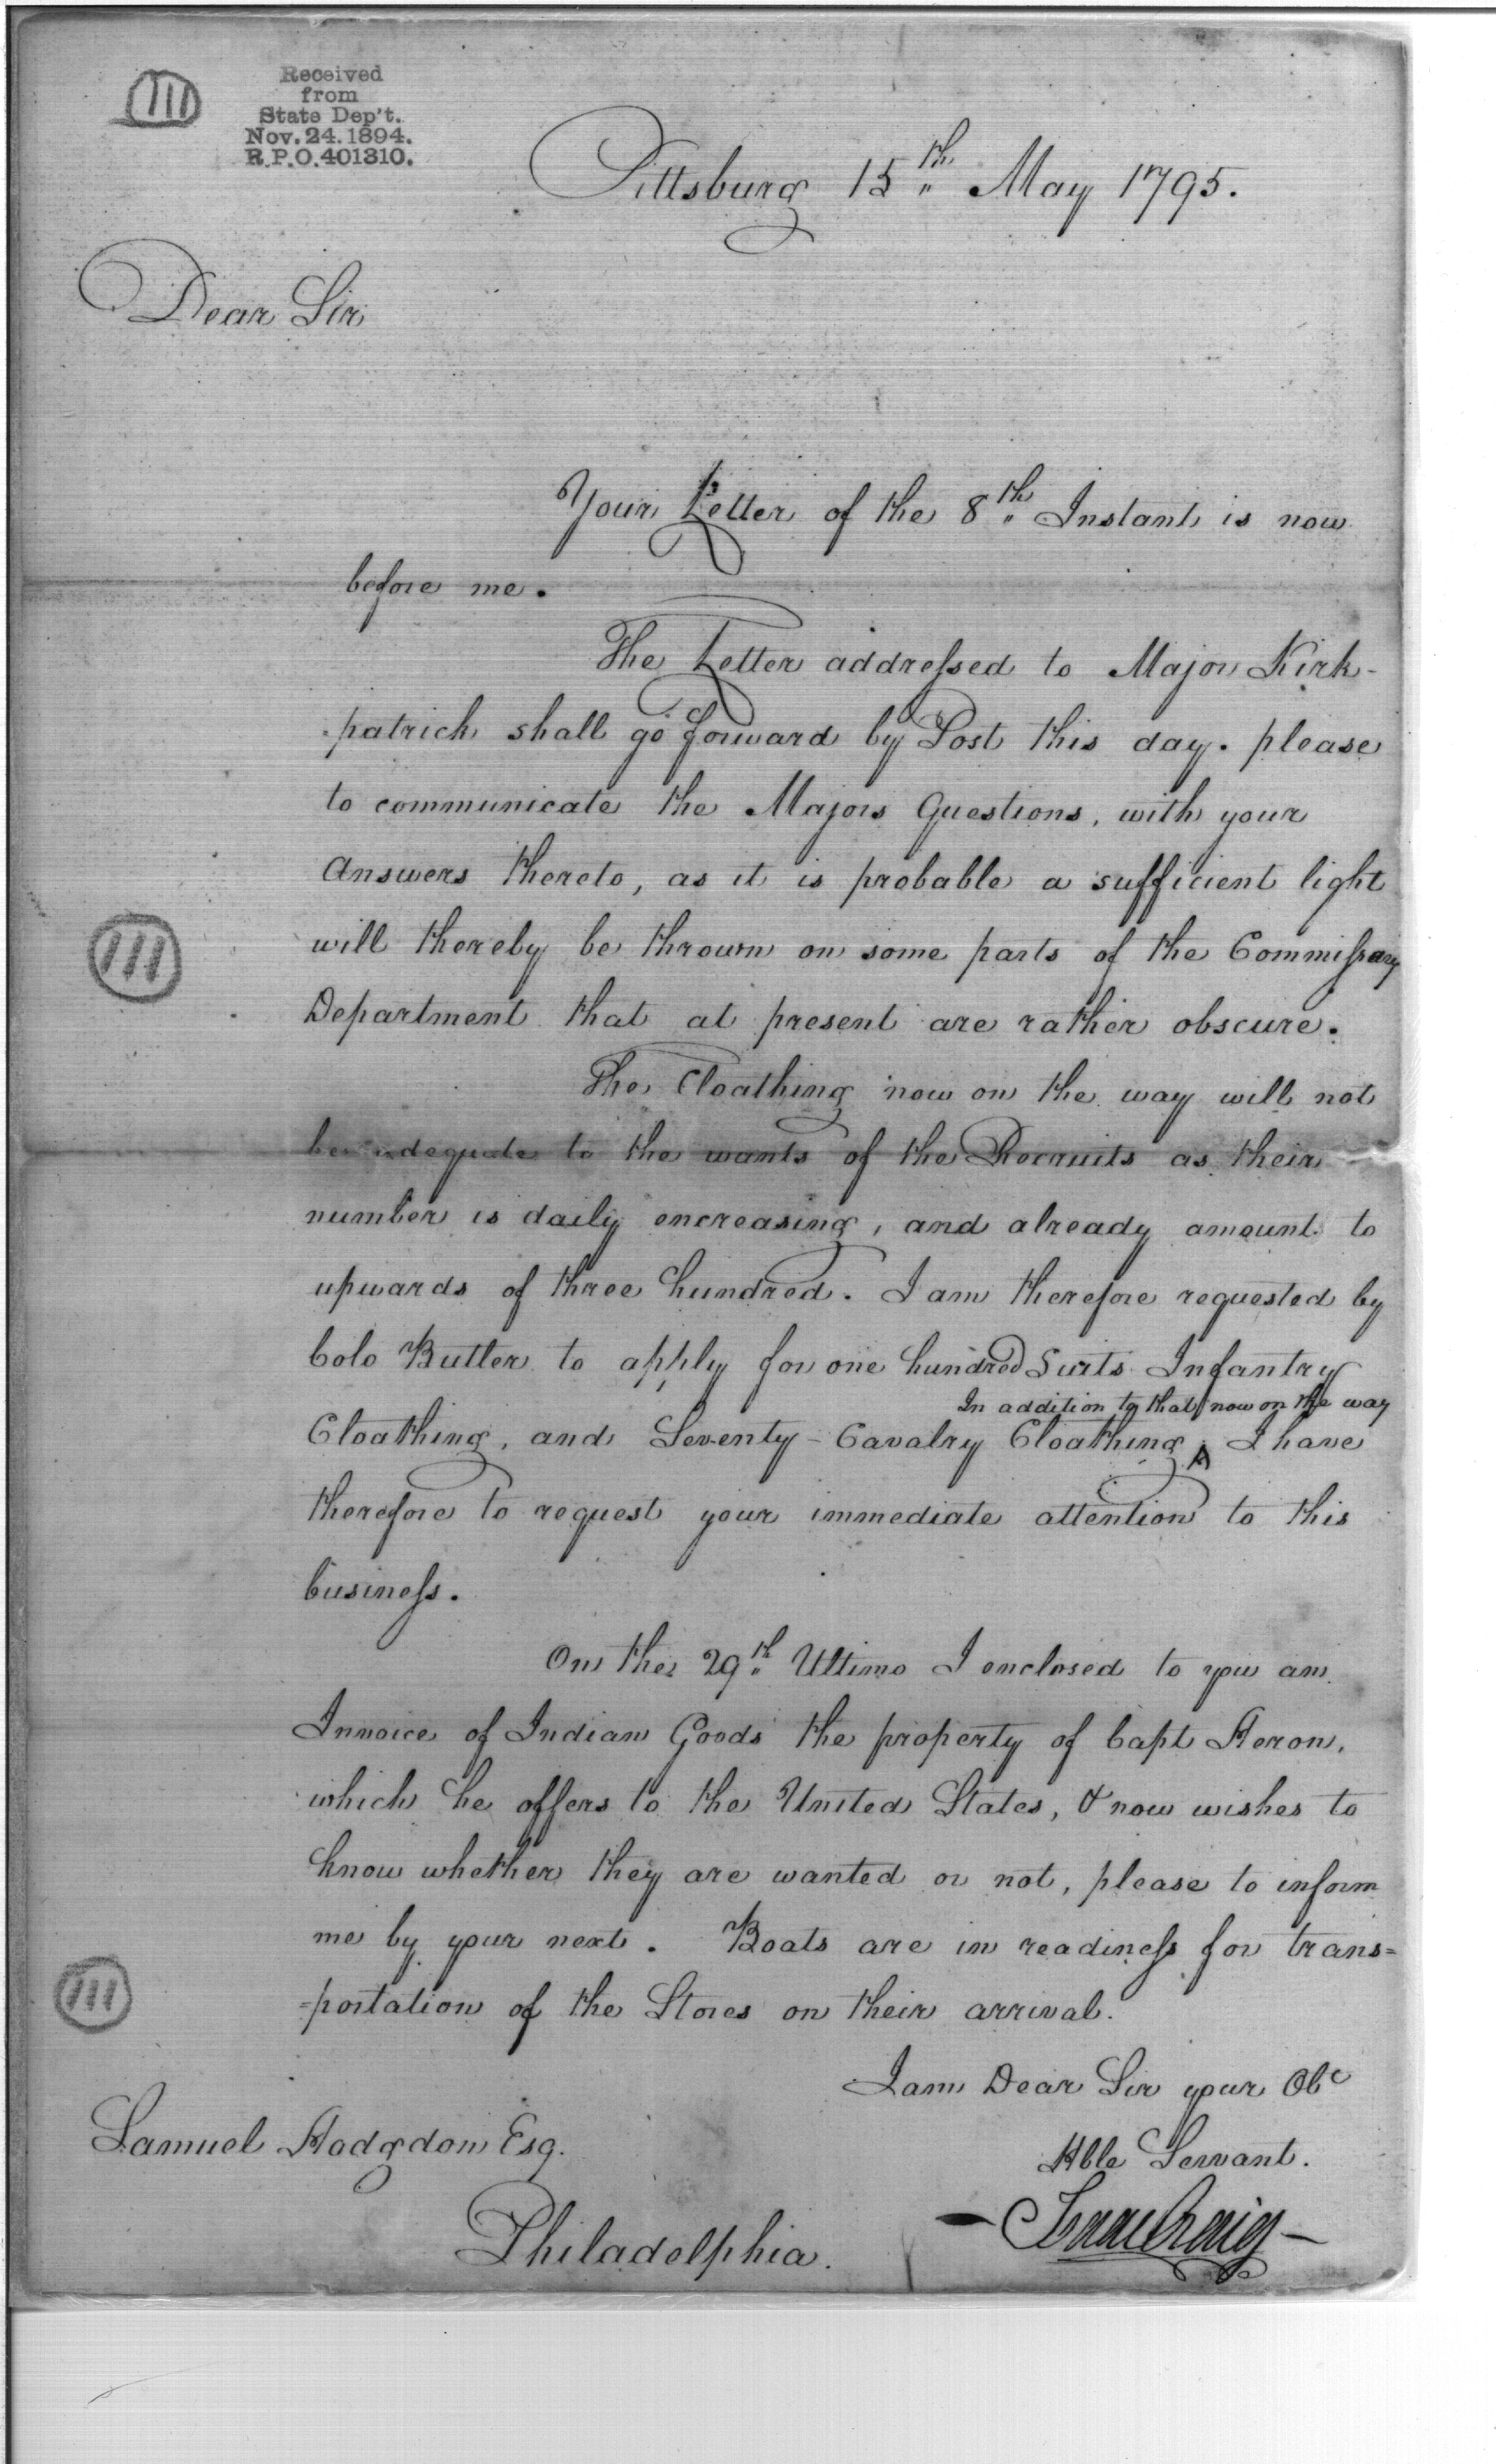 III
Received
from
State Dep't.
Nov. 24. 1894.
R.P.O. 401310.
Pittsburg 15th May 1795.
Dear Sir
Your Letter of the 8th Instant is now
before me.
The Letter addressed to Major Kirk-
-patrick shall go forward by Post this day. please
to communicate the Majors Questions, with your
Answers thereto, as it is probable a sufficient light
will thereby be thrown on some parts of the Commissary
III
Department that at present are rather obscure.
The Cloathing now on the way will not
be adequate to the wants of the Recruits as their
number is daily encreasing, and already amount to
upwards of three hundred. I am therefore requested by
Colo Butler to apply for one hundred Suits Infantry
In addition to that now on the way
Cloathing, and Seventy - Cavalry Cloathing ^ I have
therefore to request your immediate attention to this
business.
On the 29th Ultimo I enclosed to you an
Invoice of Indian Goods the property of Capt Heron,
which he offers to the United States, & now wishes to
know whether they are wanted or not, please to inform
me by your next. Boats are in readiness for trans=
=portation of the Stores on their arrival.
III
I am Dear Sir your Obe
Hble Servant.
Samuel Hodgdon Esq.
Isaac Craig
Philadelphia.